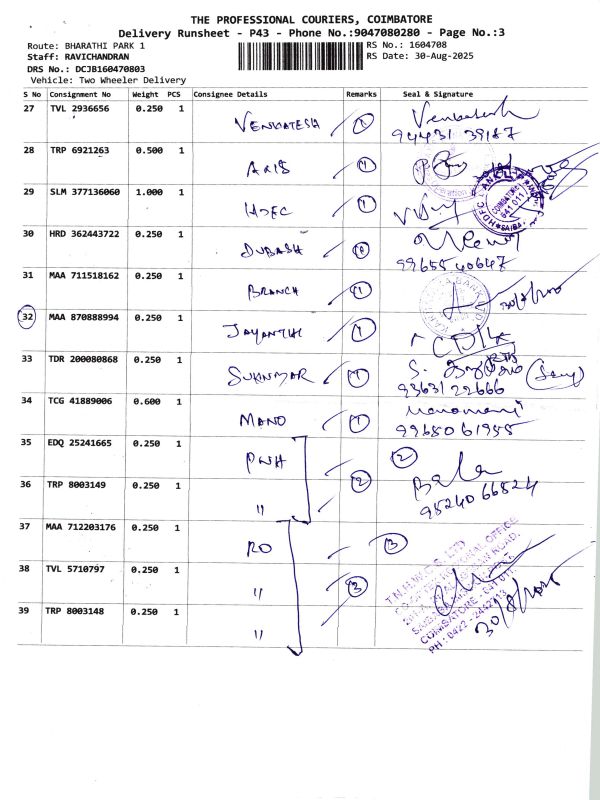 THE PROFESSIONAL COURIERS, COIMBATORE
Delivery Runsheet - P43 - Phone No.:9047080280 - Page No.:3
Route: BHARATHI PARK 1
RS No.: 1604708
Staff: RAVICHANDRAN
RS Date: 30-Aug-2025
DRS No.: DCJB160470803
Vehicle: Two Wheeler Delivery
S No Consignment No Weight PCS Consignee Details Remarks Seal & Signature
27 TVL 2936656 0.250 1 VENKATESH 1 Venkatesh
94431 39187
28 TRP 6921263 0.500 1 AXIS 1
29 SLM 377136060 1.000 1 HDFC 1
HDFC BANK LTD
COIMBATORE
641 011
30 HRD 362443722 0.250 1 DUBASH
99655 40647
31 MAA 711518162 0.250 1 BRANCH 1
32 MAA 870888994 0.250 1 JAYANTHI 1
33 TDR 200080868 0.250 1 SUKUMAR 1 S.
93631 22666
34 TCG 41889006 0.600 1 MANO 1 Manomani
99650 61955
35 EDQ 25241665 0.250 1 PWH 2 2 Bala
36 TRP 8003149 0.250 1 "
95240 66524
37 MAA 712203176 0.250 1 RO 3
38 TVL 5710797 0.250 1 " 3
39 TRP 8003148 0.250 1 "
COIMBATORE - 641 011.
PH : 0422 -
30/8/2025